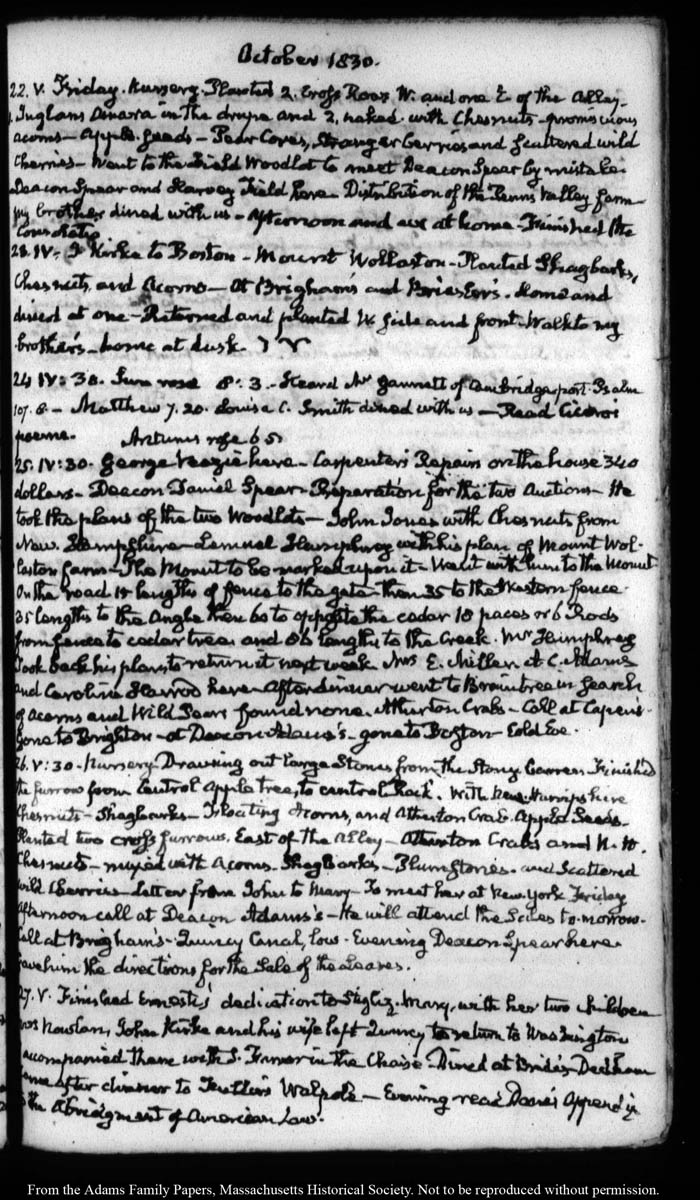 October 1830.
22. V. Friday. Nursery. Planted 2. Cross Rows W. and one E. of the Alley
Juglans in the drupe and 2. naked. with Chesnuts promiscuous
acorns — Apple. seeds — Pear Cores, berries and scattered wild
Cherries — Went to the Field Woodlot to meet Deacon Spear by mistake.
Deacon Spear and Harvey Field here. Distribution of the Penns Valley farm
my brother dined with us — Afternoon and eve at home. Finished the
23. IV: J Kirke to Boston — Mount Wollaston — Planted Shagbarks,
Chesnuts and Acorns — At Brigham's and Briesler's. Home and
dined at one — Returned and planted W. side and front. Walk to my
brother's — home at dusk.
24 IV: 30. Sun rose 6: 3. Heard Mr Gannett of Cambridge port. Psalm
107. 8. — Matthew 7. 20. Louisa C. Smith dined with us — Read Ciceros
poems. Arcturus rose 6 5
25. IV: 30. George Veazie here — Carpenter's Repairs on the house 340
dollars — Deacon Daniel Spear. Preparation for the two Auctions — He
took the plans of the two Woodlots — John Jones with Chesnuts from
New. Hampshire — Lemuel Humphrey with his plan of Mount Wol-
laston farm — The Mount to be marked upon it — Went with him to the Mount
On the road 18 lengths of fence to the gate — then 35 to the Western fence.
35 lengths to the Angle then 60 to opposite the cedar 18 paces or 6 Rods
from fence to cedar tree and 86 lengths to the Creek. Mr Humphrey
took back his plan to return it next week. Mrs E. Miller A C. Adams
and Caroline Harrod here — After dinner went to Braintree in search
of acorns and Wild Pears found none. Atherton Crabs — Call at Capen's.
gone to Brighton — at Deacon Adams's — gone to Boston — Cold Eve.
26. V: 30. Nursery. Drawing out large Stones from the Stony Corner. Finished
the furrow from Central Apple tree, to central Rock. With New. Hampshire
Chesnuts — Shagbarks — Floating Acorns, and Atherton Crab. Apple Seeds.
Planted two cross furrows. East of the Alley — Atherton Crabs and N. H.
Chesnuts — mixed with Acorns. Shagbarks — Plumstones. and Scattered
wild Cherries — Letter from John to Mary — To meet her at New. York Friday
Afternoon call at Deacon Adams's — He will attend the Sales to-morrow.
Call at Brigham's — Quincy Canal, low. Evening Deacon Spear here.
Gave him the directions for the Sale of the Leases.
27. V. Finished Ernesti's dedication to Stigliz. Mary, with her two children
Mrs Nowlan, John Kirke and his wife left Quincy to return to Washington
accompanied them with I. Farmer in the Chaise — Dined at Brides Dedham
came after dinner to Fuller's Walpole — Evening read Dane's Appendix
to the Abridgment of American Law.
From the Adams Family Papers, Massachusetts Historical Society. Not to be reproduced without permission.